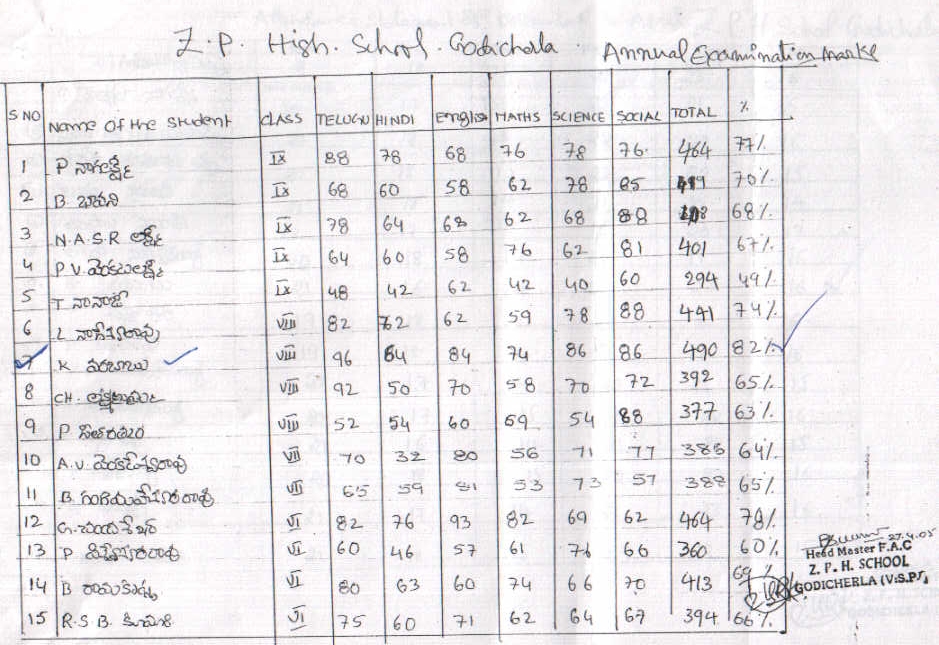 Z.P. High. School. Godicherla Annual Examination marks
S NO Name Of the Student CLASS TELUGU HINDI English MATHS SCIENCE SOCIAL TOTAL %
1 P IX 88 78 68 76 78 76 464 77%
2 B భవాని IX 68 60 58 62 78 85 70%
3 N.A.S.R లక్ష్మి IX 78 64 68 62 68 88 68%
4 P.V. IX 64 60 58 76 62 81 401 67%
5 T నానాజీ IX 48 42 62 42 40 60 294 49%
6 L VIII 82 72 62 59 78 88 441 74%
7 K వరబాబు VIII 96 64 84 74 86 86 490 82%
8 CH. VIII 92 50 70 58 70 72 392 65%
9 P VIII 52 54 60 69 54 88 377 63%
10 A.V. వెంకటేశ్వరరావు VII 70 32 80 56 71 77 64%
11 B. VII 65 59 81 53 73 57 388 65%
12 G. VI 82 76 93 82 69 62 464 78%
13 P VI 60 46 57 61 76 60 360 60%
14 B రామకృష్ణ VI 80 63 60 74 66 70 413 69%
15 R.S.B. కుమారి VI 75 60 71 62 64 67 394 66%
27.4.05
Head Master F.A.C
Z. P. H. SCHOOL
GODICHERLA (V.S.P.)